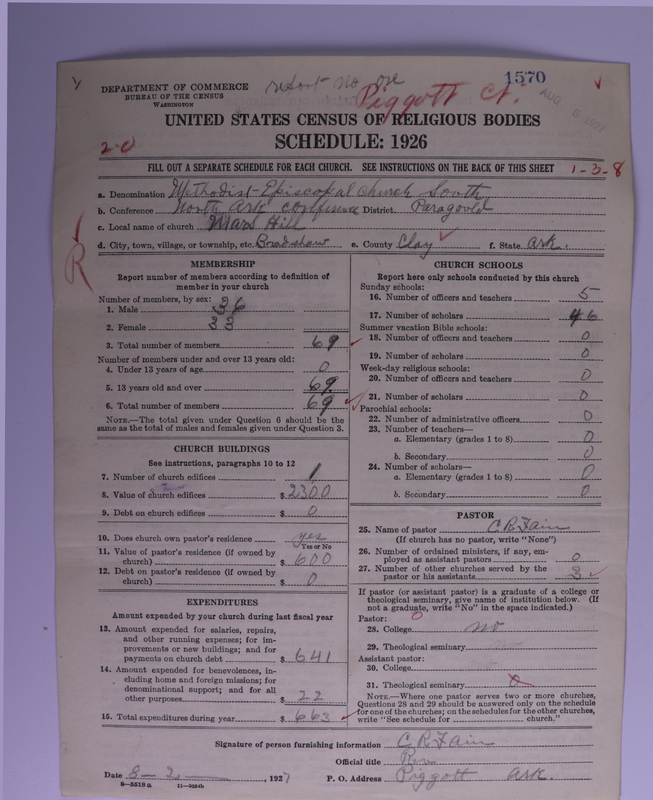 1570
DEPARTMENT OF COMMERCE
BUREAU OF THE CENSUS
WASHINGTON
report no one
Piggott Ct.
AUG
UNITED STATES CENSUS OF RELIGIOUS BODIES
SCHEDULE: 1926
2-0
FILL OUT A SEPARATE SCHEDULE FOR EACH CHURCH. SEE INSTRUCTIONS ON THE BACK OF THIS SHEET
1-3-8
a. Denomination Methodist-Episcopal Church South
b. Conference North Ark conference District Paragould
c. Local name of church Mars Hill
d. City, town, village, or township, etc. Bradshaw e. County Clay f. State Ark.
R
MEMBERSHIP
Report number of members according to definition of
member in your church
Number of members, by sex:
1. Male 36
2. Female 33
3. Total number of members 69
Number of members under and over 13 years old:
4. Under 13 years of age 0
5. 13 years old and over 69
6. Total number of members 69
NOTE.—The total given under Question 6 should be the
same as the total of males and females given under Question 3.
CHURCH BUILDINGS
See instructions, paragraphs 10 to 12
7. Number of church edifices 1
8. Value of church edifices $2300
9. Debt on church edifices $ 0
10. Does church own pastor's residence yes
Yes or No
11. Value of pastor's residence (if owned by
church) $ 600
12. Debt on pastor's residence (if owned by
church) $ 0
EXPENDITURES
Amount expended by your church during last fiscal year
13. Amount expended for salaries, repairs,
and other running expenses; for im-
provements or new buildings; and for
payments on church debt $ 641
14. Amount expended for benevolences, in-
cluding home and foreign missions; for
denominational support; and for all
other purposes $ 22
15. Total expenditures during year $ 663
CHURCH SCHOOLS
Report here only schools conducted by this church
Sunday schools:
16. Number of officers and teachers 5
17. Number of scholars 46
Summer vacation Bible schools:
18. Number of officers and teachers 0
19. Number of scholars 0
Week-day religious schools:
20. Number of officers and teachers 0
21. Number of scholars 0
Parochial schools:
22. Number of administrative officers 0
23. Number of teachers—
a. Elementary (grades 1 to 8) 0
b. Secondary 0
24. Number of scholars—
a. Elementary (grades 1 to 8) 0
b. Secondary 0
PASTOR
25. Name of pastor C. R. Fain
(If church has no pastor, write "None")
26. Number of ordained ministers, if any, em-
ployed as assistant pastors 0
27. Number of other churches served by the
pastor or his assistants 3
If pastor (or assistant pastor) is a graduate of a college or
theological seminary, give name of institution below. (If
not a graduate, write "No" in the space indicated.)
Pastor: 0
28. College no
29. Theological seminary
Assistant pastor:
30. College
31. Theological seminary
NOTE.—Where one pastor serves two or more churches,
Questions 28 and 29 should be answered only on the schedule
for one of the churches; on the schedules for the other churches,
write "See schedule for church."
Signature of person furnishing information C. R. Fain
Official title
Date 8-2, 1927 P. O. Address Piggott Ark.